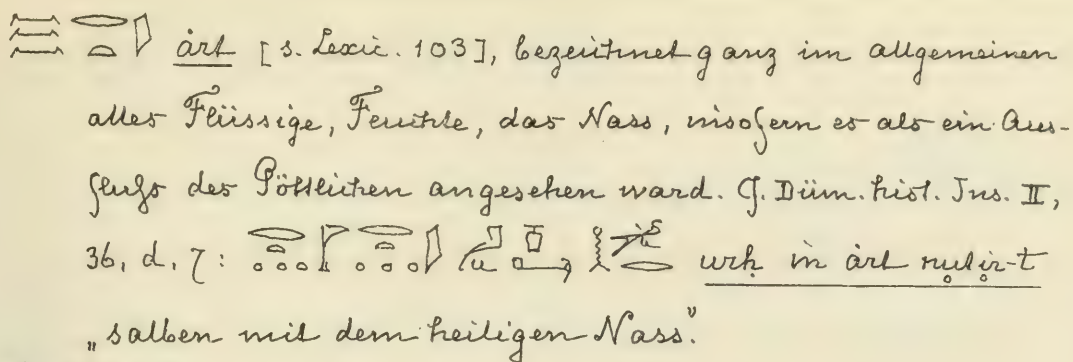 ȧrt [s. Lexic. 103], bezeichnet ganz im allgemeinen
alles Flüssige, Feuchte, das Nass, insofern es als ein Aus-
fluſs des Göttlichen angesehen ward. Cf. Düm. hist. Ins. II,
36, d, 7: urḥ in ȧrt nutir-t
„salben mit dem heiligen Nass."